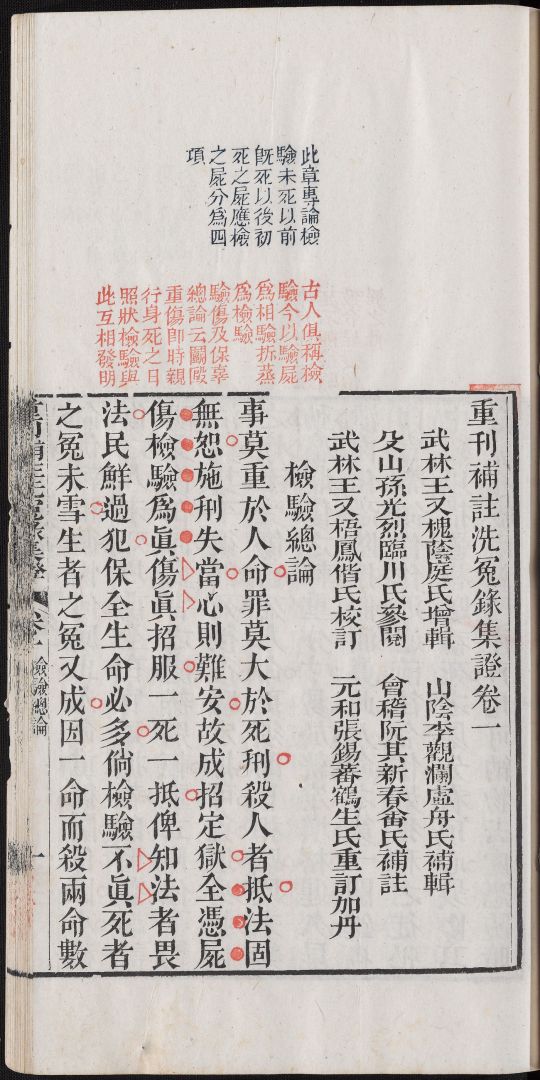 此章專論檢
驗未死以前
旣死以後初
死之屍應檢
之屍分爲四
項
古人俱稱檢
驗今以驗屍
爲相驗拆蒸
爲檢驗
驗傷及保辜
總論云鬭毆
重傷卽時親
行身死之日
照狀檢驗與
此互相發明
重刊補註洗冤錄集證卷一
武林王又槐蔭庭氏增輯 山陰李觀瀾虛舟氏補輯
及山孫光烈臨川氏參閱 會稽阮其新春畬氏補註
武林王又梧鳳偕氏校訂 元和張錫蕃鶴生氏重訂加丹
檢驗總論
事莫重於人命罪莫大於死刑殺人者抵法固
無恕施刑失當心則難安故成招定獄全憑屍
傷檢驗爲眞傷眞招服一死一抵俾知法者畏
法民鮮過犯保全生命必多倘檢驗不眞死者
之冤未雪生者之冤又成因一命而殺兩命數
檢驗總論
一